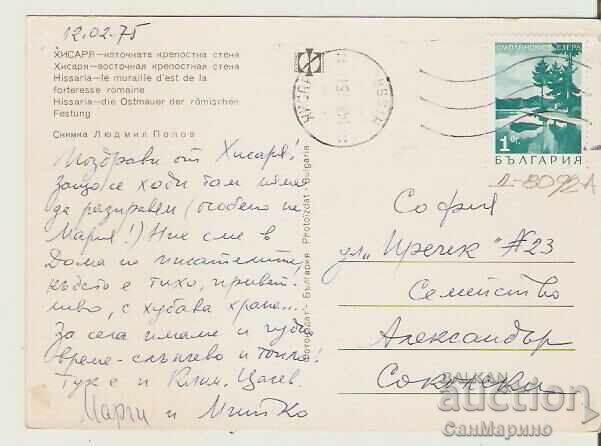 12.02.75
ХИСАРЯ—източната крепостна стена
Хисаря—восточная крепостная стена
Hissaria—le muraille d'est de la
forteresse romaine
Hissaria—die Ostmauer der römischen
Festung
Снимка Людмил Попов
Поздрави от Хисаря!
Защо се ходи там няма
да разправям (особено на
Мария!) Ние сме в
Дома на писателите,
където е тихо, привет-
ливо, с хубава храна...
За сега имаме и чудно
време - слънчево и топло!
Тук е и Клим. Цачев.
Марги и Митко
Фотоиздат - България Photoizdat - Bulgaria
СМОЛЯНСКИ ЕЗЕРА
1 ст.
БЪЛГАРИЯ
Д-8092-А
София
ул. "Иречек" №23
Семейство
Александър
BALKAN
auction
СанМарино